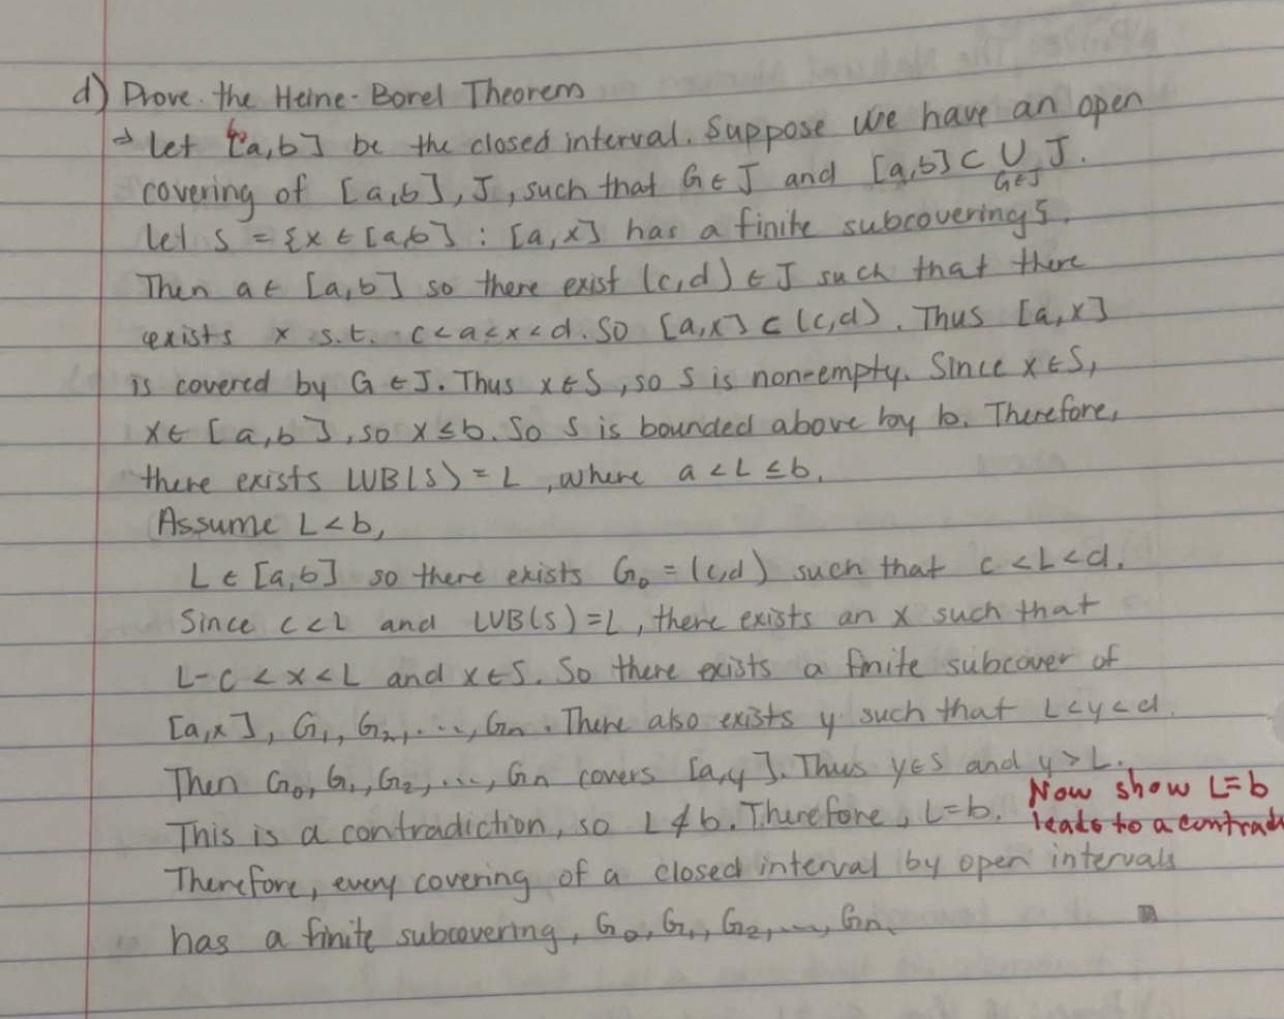 d) Prove the Heine-Borel Theorem
→ Let [a,b] be the closed interval. Suppose we have an open
covering of [a,b], J, such that G ∈ J and [a,b] ⊂ ∪ J.
G∈J
Let S = {x ∈ [a,b] : [a,x] has a finite subcovering}.
Then a ∈ [a,b] so there exist (c,d) ∈ J such that there
exists x s.t. c<a<x<d. So [a,x] ⊂ (c,d). Thus [a,x]
is covered by G ∈ J. Thus x∈S, so S is non-empty. Since x∈S,
x∈ [a,b], so x≤b. So S is bounded above by b. Therefore,
there exists LUB(S) = L, where a < L ≤ b.
Assume L<b,
L ∈ [a,b] so there exists G₀ = (c,d) such that c <L<d.
Since c<L and LUB(S)=L, there exists an x such that
L-c < x < L and x∈S. So there exists a finite subcover of
[a,x], G₁, G₂, ..., Gn. There also exists y such that L<y<d.
Then G₀, G₁, G₂, ..., Gn covers [a,y]. Thus y∈S and y > L.
This is a contradiction, so L ≮ b. Therefore, L=b.
Now show L=b
leads to a contrad
Therefore, every covering of a closed interval by open intervals
has a finite subcovering, G₀, G₁, G₂, ..., Gn.